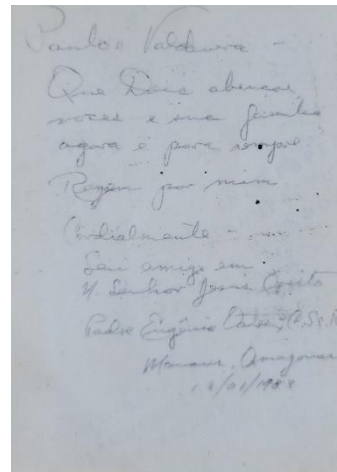 Paulo e Valdivera –
Que Deus abençoe
vocês e sua família
agora e para sempre.
Rezem por mim
Cordialmente –
Seu amigo em
N. Senhor Jesus Cristo
Padre Eugênio C.Ss.R.
Manaus, Amazonas